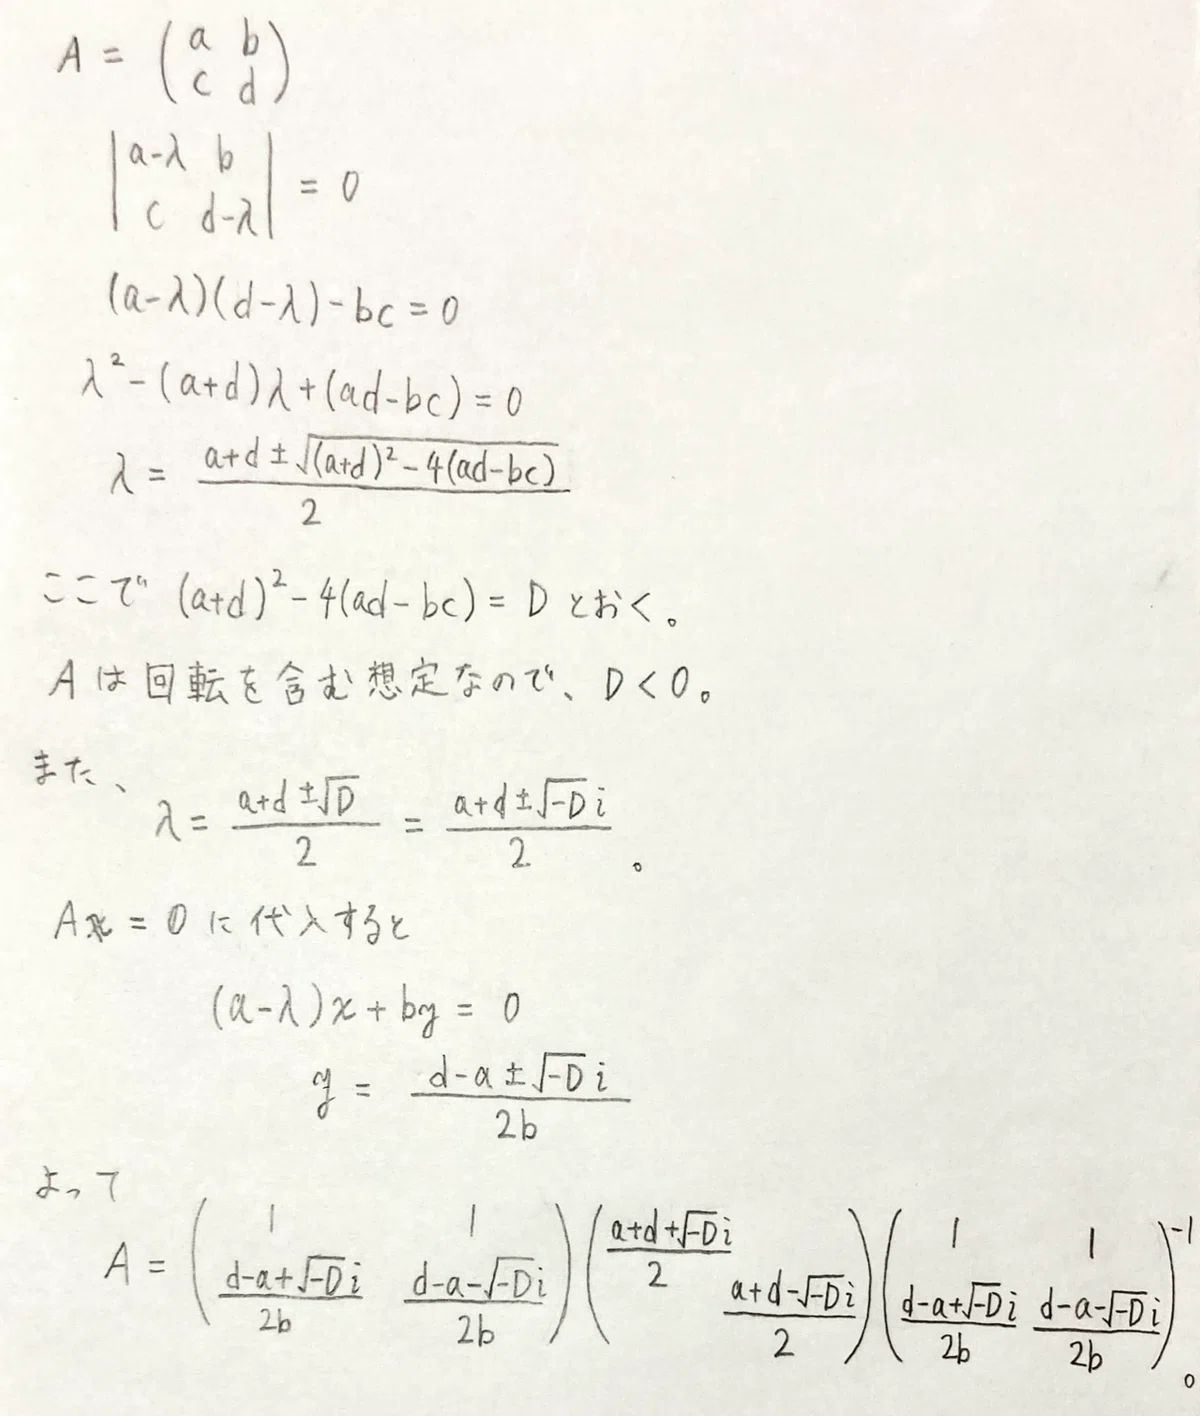 A = \begin{pmatrix} a & b \\ c & d \end{pmatrix}
\begin{vmatrix} a-λ & b \\ c & d-λ \end{vmatrix} = 0
(a-λ)(d-λ)-bc=0
λ^2-(a+d)λ+(ad-bc)=0
λ = \frac{a+d±\sqrt{(a+d)^2-4(ad-bc)}}{2}
ここで (a+d)^2-4(ad-bc)=D とおく。
Aは回転を含む想定なので、D<0。
また、
λ = \frac{a+d±\sqrt{D}}{2} = \frac{a+d±\sqrt{-D}i}{2}。
Ax=0に代入すると
(a-λ)x+by=0
y = \frac{d-a±\sqrt{-D}i}{2b}
よって
A = \begin{pmatrix} 1 & 1 \\ \frac{d-a+\sqrt{-D}i}{2b} & \frac{d-a-\sqrt{-D}i}{2b} \end{pmatrix} \begin{pmatrix} \frac{a+d+\sqrt{-D}i}{2} & \\ & \frac{a+d-\sqrt{-D}i}{2} \end{pmatrix} \begin{pmatrix} 1 & 1 \\ \frac{d-a+\sqrt{-D}i}{2b} & \frac{d-a-\sqrt{-D}i}{2b} \end{pmatrix}^{-1}。